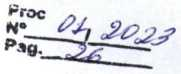 Proc
N° 01, 2023
Pag. 26